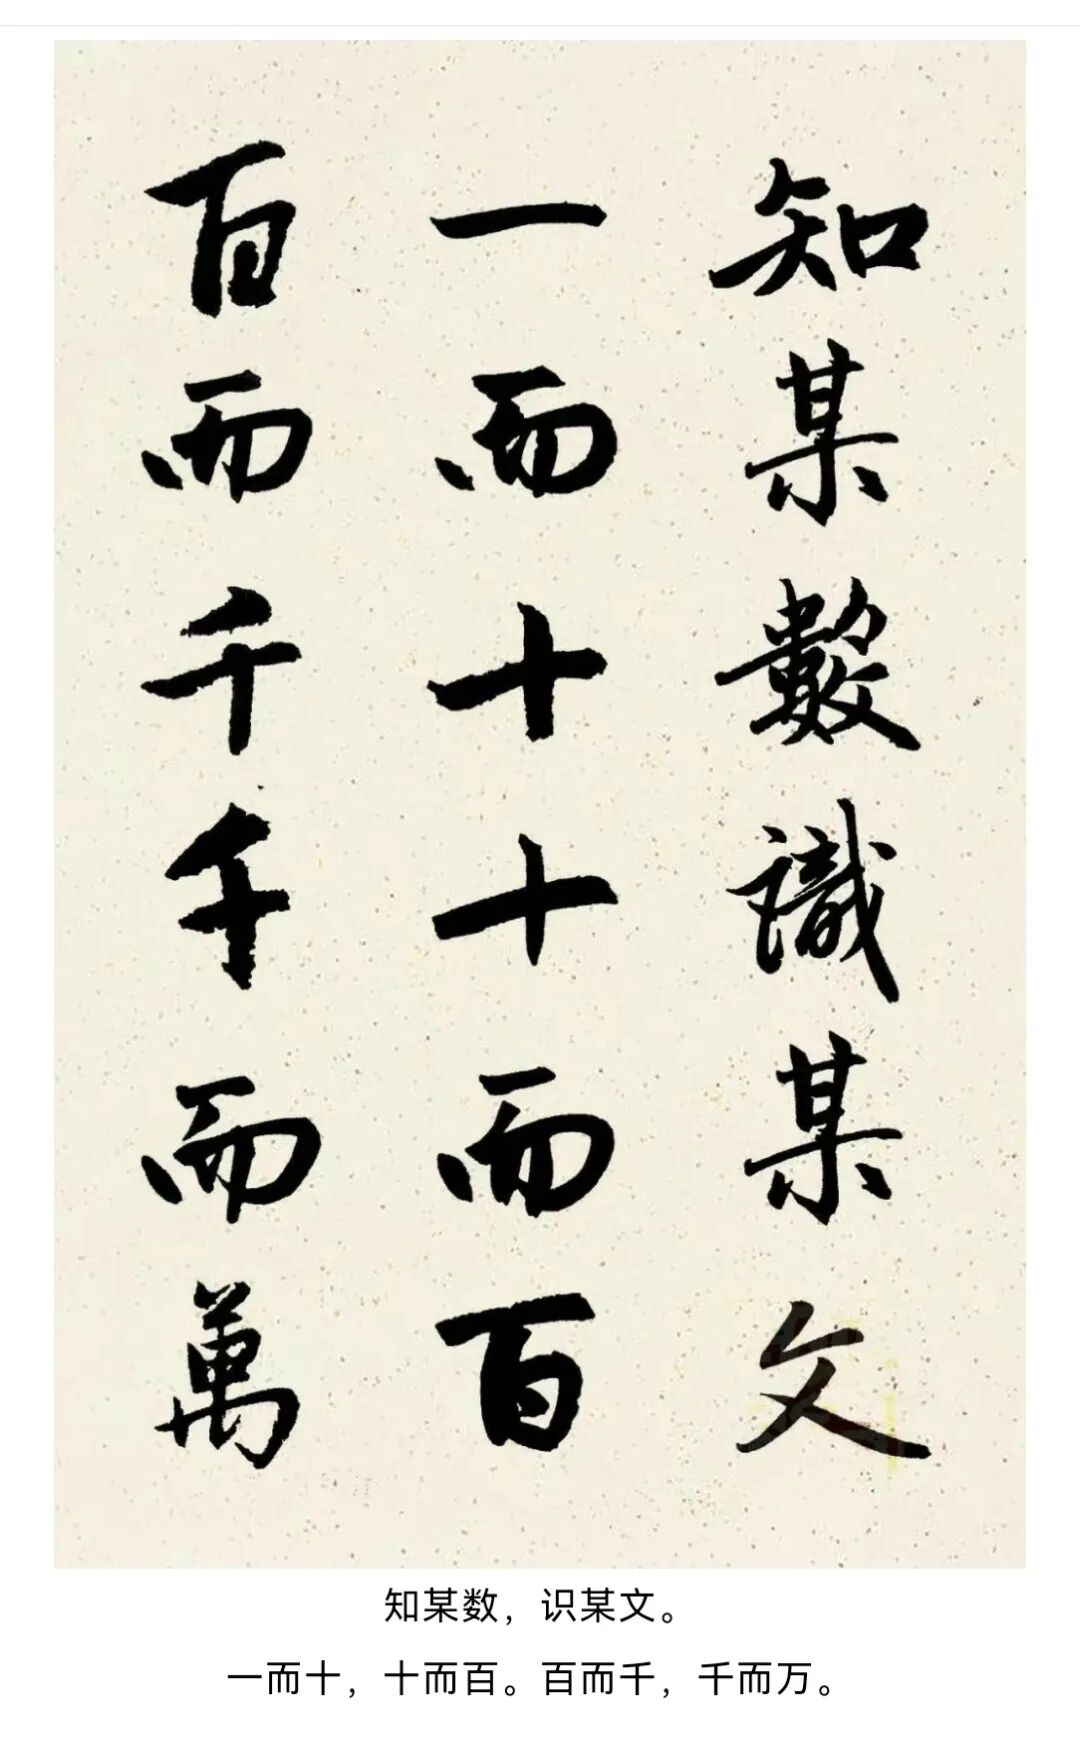 知某數識某文
一而十十而百
百而千千而萬
知某数，识某文。
一而十，十而百。百而千，千而万。